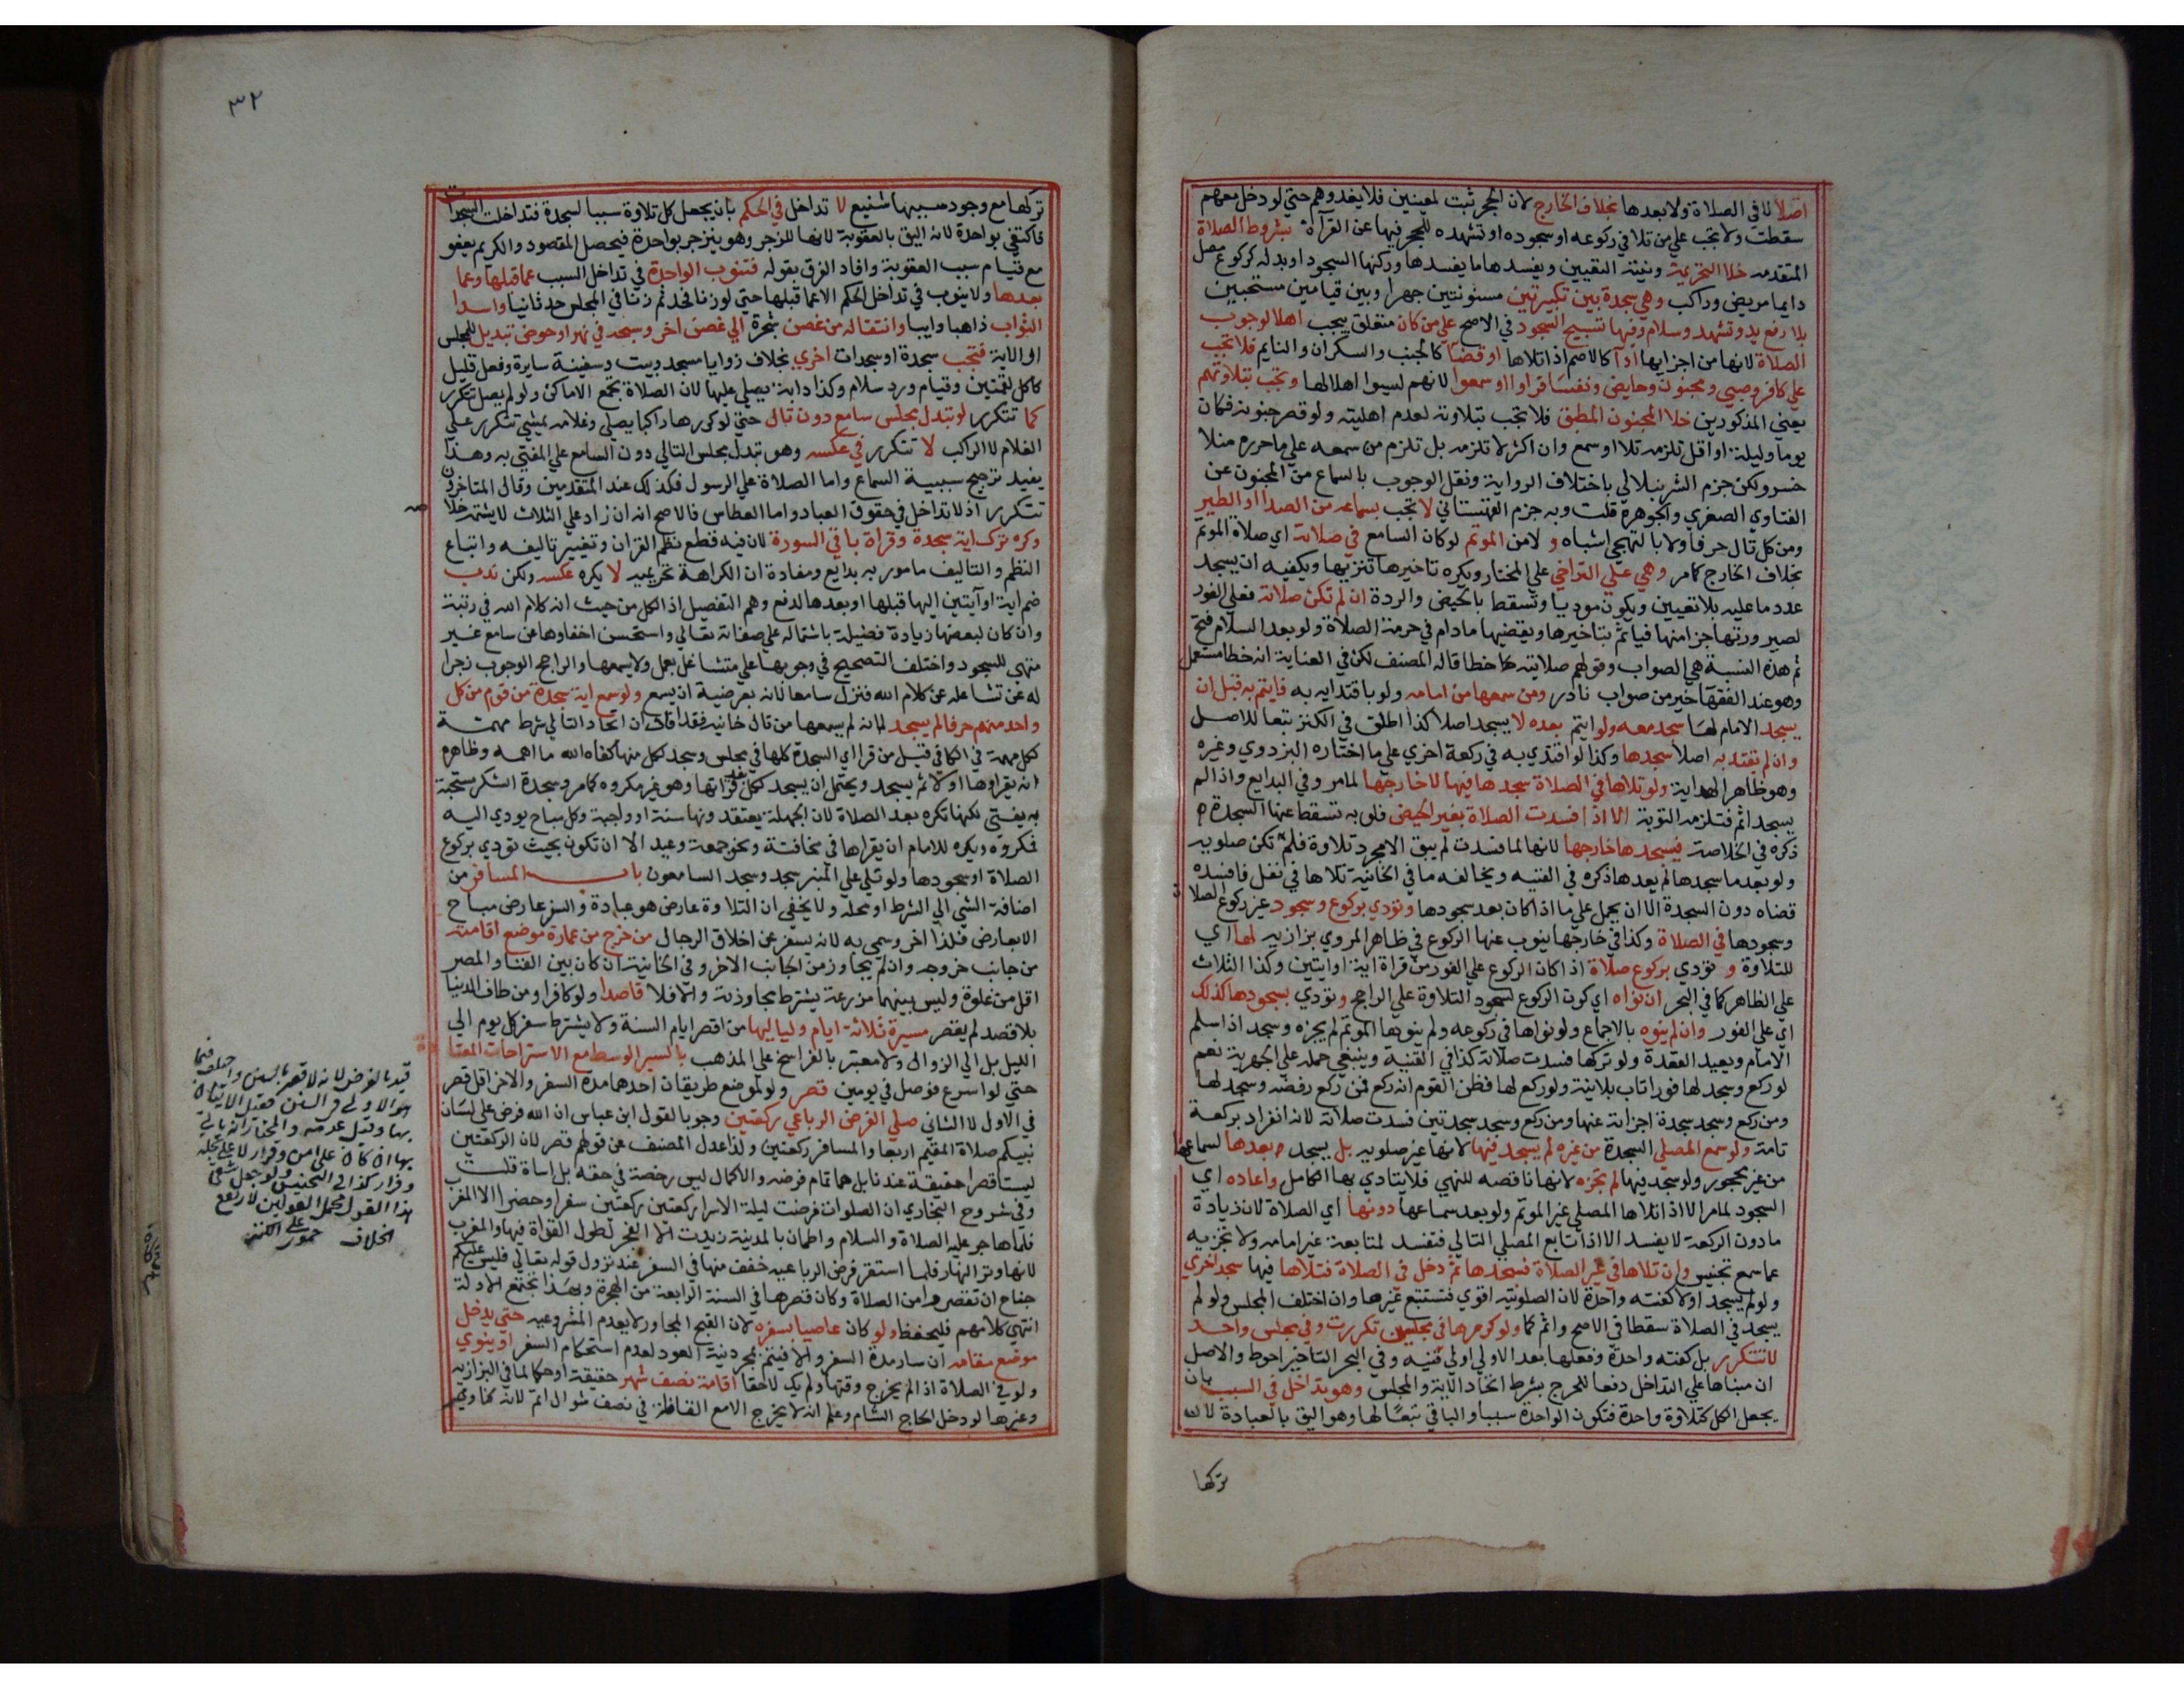 اصلا لا في الصلاة ولا بعدها بخلاف الخارج لان الحجر ثبت لمعينين فلا يعدوهم حتي لو دخل معهم
سقطت ولا تجب علي من تلا في ركوعه او سجوده او تشهده للحجر فيها عن القرآة بشروط الصلاة
المتقدمه خلا التحريمة ونية التعيين ويفسدها ما يفسدها وركنها السجود او بدله كركوع مصل
دايما مريض وراكب وهي سجدة بين تكبيرتين مسنونتين جهرا وبين قيامين مستحبين
بلا رفع يد وتشهد وسلام وفيها تسبيح السجود في الاصح علي من كان متعلق بيجب اهلا لوجوب
الصلاة لانها من اجزايها ادآ كالاصم اذا تلاها او قضآ كالجنب والسكران والنايم فلا تجب
علي كافر وصبي ومجنون وحايض ونفسا قراوا او سمعوا لانهم ليسوا اهلا لها وتجب بتلاوتهم
يعني المذكورين خلا المجنون المطبق فلا تجب بتلاوته لعدم اهليته ولو قصر جنونه فكان
يوما وليلة او اقل تلزمه تلا او سمع وان اكثر لا تلزمه بل تلزم من سمعه علي ما حرره منلا
خسرو لكن جزم الشرنبلالي باختلاف الرواية ونقل الوجوب بالسماع من المجنون عن
الفتاوي الصغري والجوهرة قلت وبه جزم القهستاني لا تجب بسماعه من الصدا او الطير
ومن كل تال حرفا ولا بالتهجي اشباه و لا من الموتم لو كان السامع في صلاته اي صلاة الموتم
بخلاف الخارج كما مر وهي علي التراخي علي المختار ويكره تاخيرها تنزيها ويكفيه ان يسجد
عدد ما عليه بلا تعيين ويكون موديا وتسقط بالحيض والردة ان لم تكن صلاتة فعلي الفور
لصيرورتها جزا منها فياثم بتاخيرها ويقضيها مادام في حرمة الصلاة ولو بعد السلام فتح
ثم هذه النسبة هي الصواب وقولهم صلاتيه خطا قاله المصنف لكن في العناية انه خطا مستعمل
وهو عند الفقها خير من صواب نادر ومن سمعها من امامه ولو باقتدايه به فايتم به قبل ان
يسجد الامام لها سجد معه ولو ايتم بعده لا يسجد اصلا كذا اطلق في الكنز تبعا للاصل
وان لم يقتد به اصلا سجدها وكذا لو اقتدي به في ركعة اخري علي ما اختاره البزدوي وغيره
وهو ظاهر الهداية ولو تلاها في الصلاة سجدها فيها لا خارجها لما مر وفي البدايع واذا لم
يسجد اثم فتلزمه التوبة الا اذا فسدت الصلاة بغير الحيض فلو به تسقط عنها السجدة
ذكره في الخلاصة فيسجدها خارجها لانها لما فسدت لم يبق الا مجرد تلاوة فلم تكن صلويه
ولو بعد ما سجدها لم يعدها ذكره في القنيه ويخالفه ما في الخانية تلاها في نفل فافسده
قضاه دون السجدة الا ان يحمل علي ما اذا كان بعد سجودها وتودي بركوع وسجود غير ركوع الصلاة
وسجودها في الصلاة وكذا في خارجها ينوب عنها الركوع في ظاهر المروي بزازيه لها اي
للتلاوة و تودي بركوع صلاة اذا كان الركوع علي الفور من قراة اية او ايتين وكذا الثلاث
علي الظاهر كما في البحر ان نواه اي كون الركوع لسجود التلاوة علي الراجح وتودي بسجودها كذلك
اي علي الفور وان لم ينوه بالاجماع ولو نواها في ركوعه ولم ينوها الموتم لم يجزه وسجد اذا سلم
الامام ويعيد القعدة ولو تركها فسدت صلاته كذا في القنيه وينبغي حمله علي الجهرية نعم
لو ركع وسجد لها فورا ناب بلا نية ولو ركع لها فظن القوم انه ركع فمن ركع رفضه وسجد لها
ومن ركع وسجد سجدة اجزاته عنها ومن ركع وسجد سجدتين فسدت صلاته لانه انفرد بركعة
تامة ولو سمع المصلي السجدة من غيره لم يسجد فيها لانها غير صلويه بل يسجد بعدها لسماعها
من غير محجور ولو سجد فيها لم تجزه لانها ناقصه للنهي فلا يتادي بها الكامل واعاده اي
السجود لما مر الا اذا تلاها المصلي غير الموتم ولو بعد سماعها دونها اي الصلاة لان زيادة
ما دون الركعة لا يفسد الا اذا تابع المصلي التالي فتفسد لمتابعة غير امامه ولا تجزيه
عما سمع تجنيس وان تلاها في غير الصلاة فسجدها ثم دخل في الصلاة فتلاها فيها سجد اخري
ولو لم يسجد اولا كفته واحدة لان الصلوتيه اقوي فتستتبع غيرها وان اختلف المجلس ولو لم
يسجد في الصلاة سقطتا في الاصح واثم كما ولو كررها في مجلسين تكررت وفي مجلس واحد
لا تتكرر بل كفته واحدة وفعلها بعد الاولي اولي قنيه وفي البحر التاخير احوط والاصل
ان مبناها علي التداخل دفعا للحرج بشرط اتحاد الاية والمجلس وهو تداخل في السبب بان
يجعل الكل كتلاوة واحدة فتكون الواحدة سببا والباقي تبعا لها وهو اليق بالعبادة لان
تركها
٣٢
تركها مع وجود سببها شنيع لا تداخل في الحكم بان يجعل كل تلاوة سببا لسجدة فتداخلت السجدات
فاكتفي بواحدة لانه اليق بالعقوبة لانها للزجر وهو ينزجر بواحدة فيحصل المقصود والكريم يعفو
مع قيام سبب العقوبة وافاد الفرق بقوله فتنوب الواحدة في تداخل السبب عما قبلها وعما
بعدها ولا ينوب في تداخل الحكم الا عما قبلها حتي لو زنا فحد ثم زنا في المجلس حد ثانيا واسدا
الثواب ذاهبا وايبا وانتقاله من غصن شجرة الي غصن اخر وسبحه في نهر او حوض تبديل للمجلس
او الاية فتجب سجدة او سجدات اخري بخلاف زوايا مسجد وبيت وسفينة سايرة وفعل قليل
كاكل لقمتين وقيام ورد سلام وكذا دابة يصلي عليها لان الصلاة تجمع الاماكن ولو لم يصل تتكرر
كما تتكرر لو تبدل مجلس سامع دون تال حتي لو كررها راكبا يصلي وغلامه يمشي تتكرر علي
الغلام لا الراكب لا تتكرر في عكسه وهو تبدل مجلس التالي دون السامع علي المفتي به وهذا
يفيد ترجيح سببية السماع واما الصلاة علي الرسول فكذلك عند المتقدمين وقال المتاخرون
تتكرر اذ لا تداخل في حقوق العباد واما العطاس فالاصح انه ان زاد علي الثلاث لا يشمته خلاصه
وكره ترك اية سجدة وقراة باقي السورة لان فيه قطع نظم القران وتغيير تاليفه واتباع
النظم والتاليف مامور به بدايع ومفادة ان الكراهة تحريميه لا يكره عكسه ولكن ندب
ضم اية او آيتين اليها قبلها او بعدها لدفع وهم التفضيل اذ الكل من حيث انه كلام الله في رتبة
وان كان لبعضها زيادة فضيلة باشتماله علي صفاته تعالي واستحسن اخفاوها عن سامع غير
متهي للسجود واختلف التصحيح في وجوبها علي متشاغل بعمل ولا يسمعها والراجح الوجوب زجرا
له عن تشاغله عن كلام الله فنزل سامعا لانه بعرضية ان يسمع ولو سمع اية سجدة من قوم من كل
واحد منهم حرفا لم يسجد لانه لم يسمعها من تال خانيه فقد افاد ان اتحاد التالي شرط مهمة
لكل مهمة في الكافي قيل من قرا اي السجدة كلها في مجلس وسجد لكل منها كفاه الله ما اهمه وظاهره
انه يقراوها اولا ثم يسجد ويحتمل ان يسجد لكل بعد قراتها وهو غير مكروه كما مر وسجدة الشكر مستحبة
به يفتي لكنها تكره بعد الصلاة لان الجهلة يعتقدونها سنة او واجبة وكل مباح يودي اليه
فمكروه ويكره للامام ان يقراها في مخافتة ونحو جمعة وعيد الا ان تكون بحيث تودي بركوع
الصلاة او سجودها ولو تلي علي المنبر سجد وسجد السامعون باب المسافر من
اضافة الشي الي الشرط او محله ولا يخفي ان التلاوة عارض هو عبادة والسفر عارض مباح
الا بعارض فلذا اخر وسمي به لانه يسفر عن اخلاق الرجال من خرج من عمارة موضع اقامته
من جانب خروجه وان لم يجاوز من الجانب الاخر وفي الخانية ان كان بين الفنا والمصر
اقل من غلوة وليس بينهما مزرعة يشترط مجاوزته والا فلا قاصدا ولو كافرا ومن طاف الدنيا
بلا قصد لم يقصر مسيرة ثلاثة ايام ولياليها من اقصر ايام السنة ولا يشترط سفر كل يوم الي
الليل بل الي الزوال ولا معتبر بالفراسخ علي المذهب بالسير الوسط مع الاستراحات المعتادة
حتي لو اسرع فوصل في يومين قصر ولو لموضع طريقان احدهما مدة السفر والاخر اقل قصر
في الاول لا الثاني صلي الفرض الرباعي ركعتين وجوبا لقول ابن عباس ان الله فرض علي لسان
نبيكم صلاة المقيم اربعا والمسافر ركعتين ولذا عدل المصنف عن قولهم قصر لان الركعتين
ليستا قصرا حقيقة عندنا بل هما تمام فرضه والاكمال ليس رخصة في حقه بل اساة قلت
وفي شروح البخاري ان الصلوات فرضت ليلة الاسرا ركعتين ركعتين سفرا وحضرا الا المغرب
فلما هاجر عليه الصلاة والسلام واطمان بالمدينة زيدت الا الفجر لطول القراة فيها والمغرب
لانها وتر النهار فلما استقر فرض الرباعيه خفف منها في السفر عند نزول قوله تعالي فليس عليكم
جناح ان تقصروا من الصلاة وكان قصرها في السنة الرابعة من الهجرة وبهذا تجتمع الادلة
انتهي كلامهم فليحفظ ولو كان عاصيا بسفره لان القبح المجاور لا يعدم المشروعيه حتي يدخل
موضع مقامه ان سار مدة السفر والا فيتم بمجرد نية العود لعدم استحكام السفر او ينوي
ولو في الصلاة اذا لم يخرج وقتها ولم يك لاحقا اقامة نصف شهر حقيقة او حكما لما في البزازيه
وغيرها لو دخل الحاج الشام وعلم انه لا يخرج الا مع القافلة في نصف شوال اتم لانه كناوي
قيد بالفرض لانه لا قصر بالسنن واختلف فيما
هو الاولي في السنن فقيل الاتيان
بها وقيل عدمه والمختار انه ياتي
بها ان كان علي امن وقرار لا علي عجله
وفرار كذا في التجنيس ولو جعل
هذا القول محمل القولين لارتفع
الخلاف حموي علي الكنز